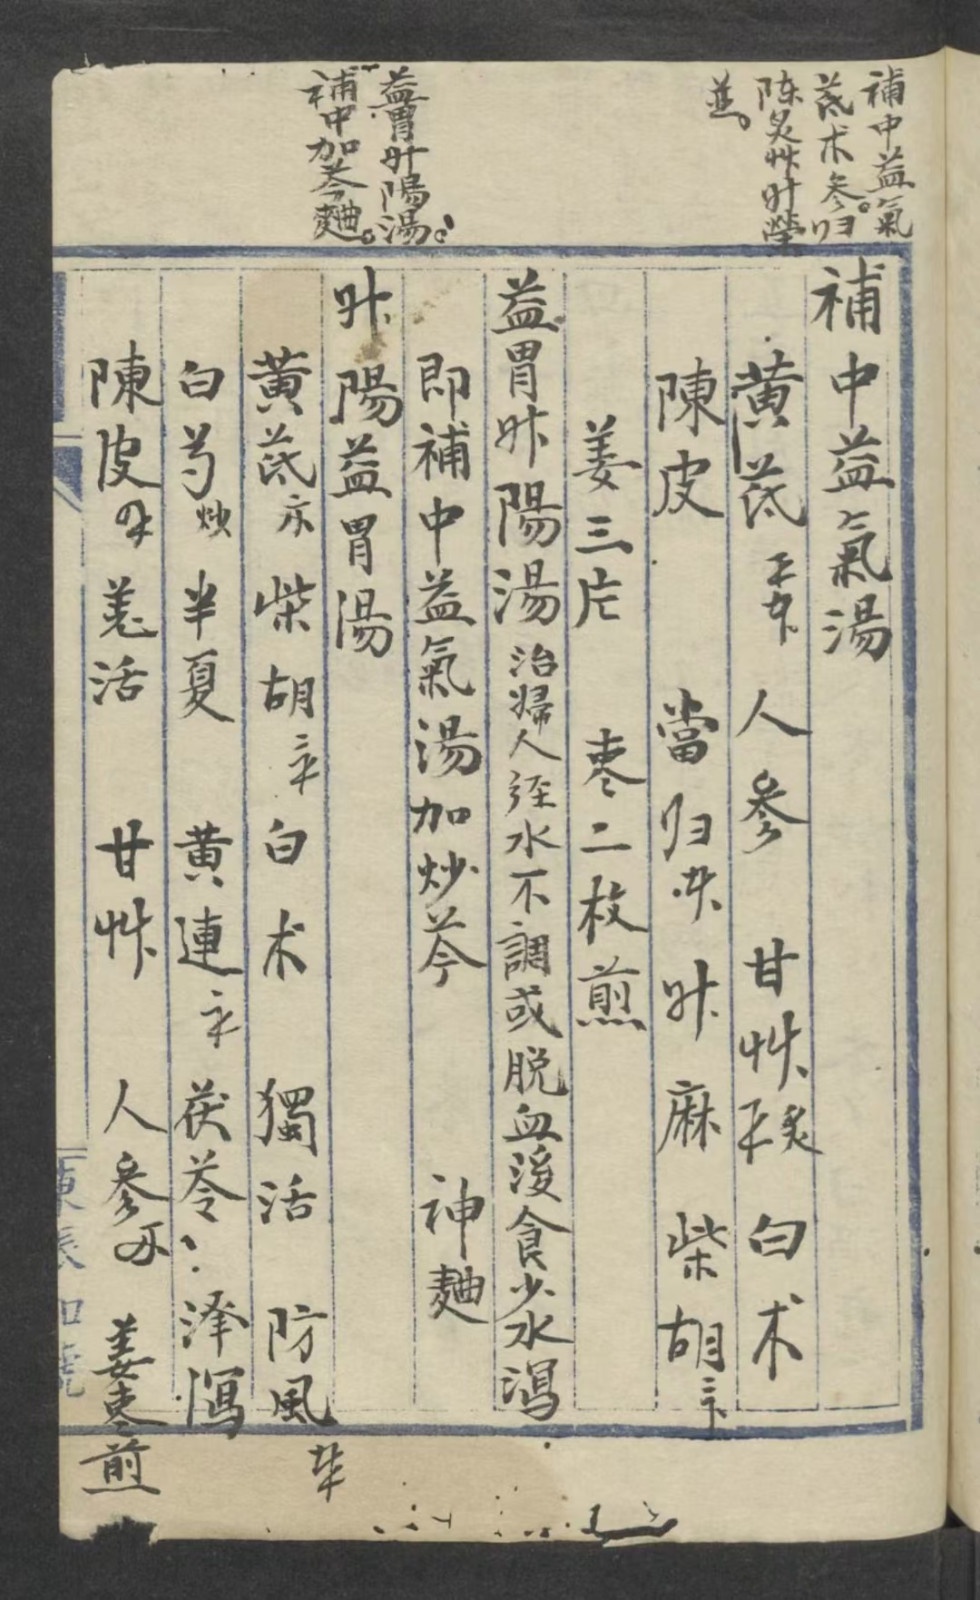 補中益氣
茋术参归
陈炙艸升紫
姜
益胃升陽湯
補中加芩麯
補中益氣湯
黄茋 人參 甘艸 炙 白术
陳皮 當归 升麻 柴胡
姜三片 枣二枚煎
益胃升陽湯 治婦人经水不調或脱血後食少水瀉
即補中益氣湯加炒芩 神麯
升陽益胃湯
黄茋 柴胡 白术 獨活 防風
白芍炒 半夏 黄連 茯苓 泽瀉
陳皮 羗活 甘艸 人參 姜枣煎